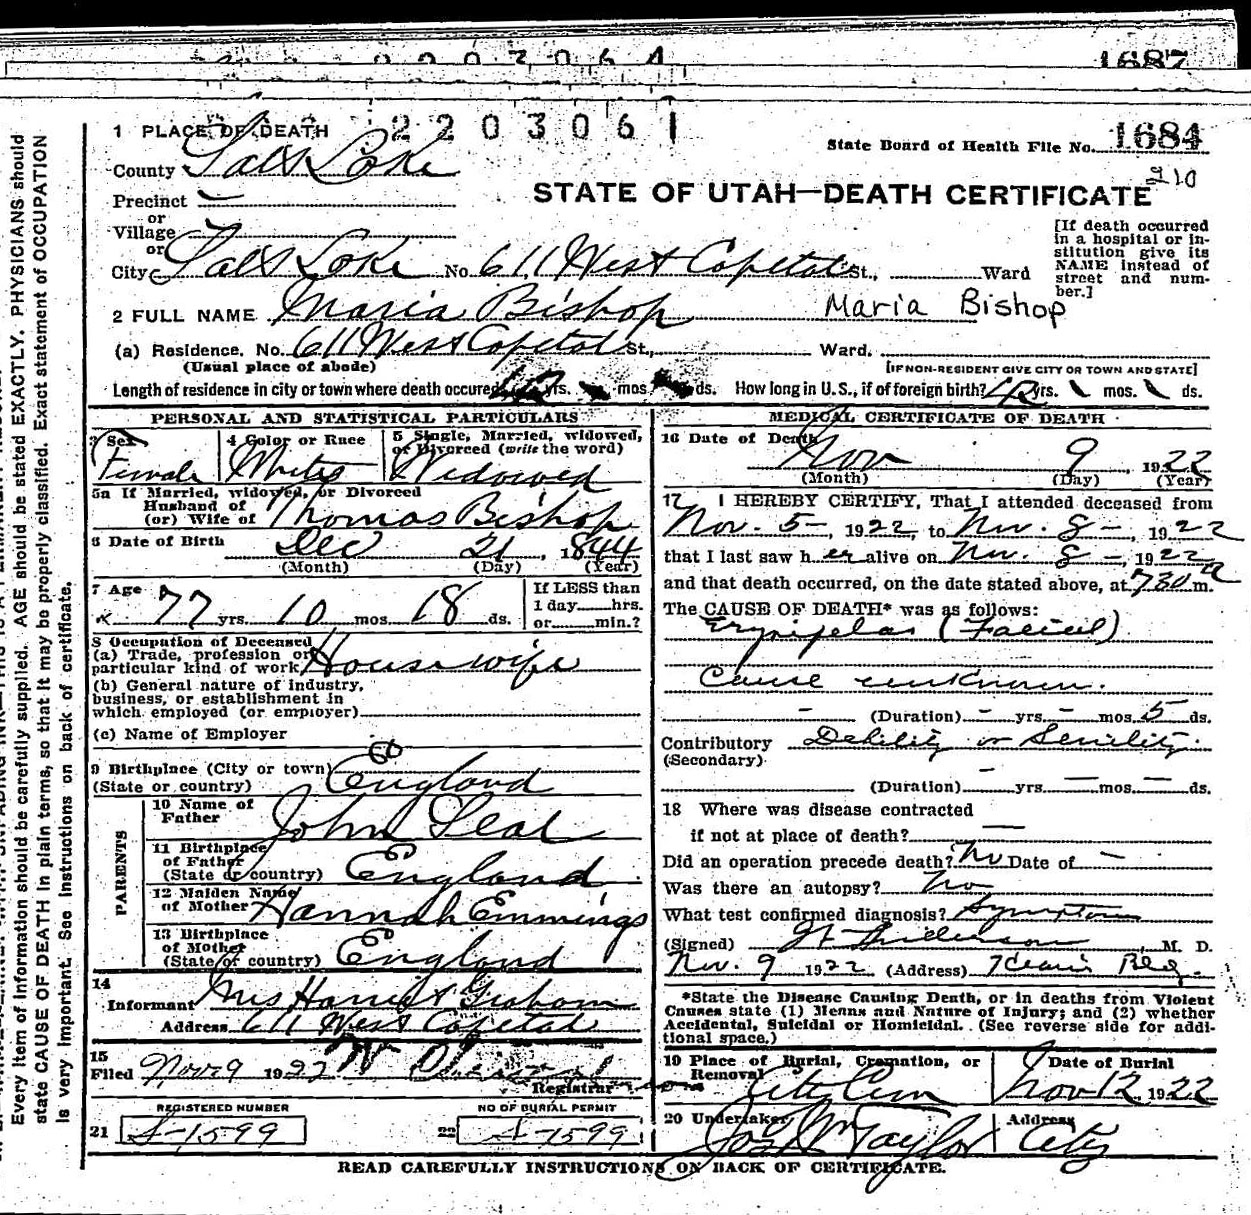 1687
1 PLACE OF DEATH 2203061
State Board of Health File No. 1684
210
County Salt Lake
STATE OF UTAH—DEATH CERTIFICATE
Precinct
or
Village
or
City Salt Lake No. 611 West Capitol St., Ward
[If death occurred in a hospital or institution give its NAME instead of street and number.]
2 FULL NAME Maria Bishop Maria Bishop
(a) Residence. No. 611 West Capitol St., Ward.
(Usual place of abode) [IF NON-RESIDENT GIVE CITY OR TOWN AND STATE]
Length of residence in city or town where death occured yrs. mos. ds. How long in U.S., if of foreign birth? yrs. mos. ds.
PERSONAL AND STATISTICAL PARTICULARS
3 Sex Female
4 Color or Race White
5 Single, Married, widowed, or Divorced (write the word) Widowed
5a If Married, widowed, or Divorced
Husband of
(or) Wife of Thomas Bishop
6 Date of Birth Dec 21, 1844
(Month) (Day) (Year)
7 Age 77 yrs. 10 mos. 18 ds.
If LESS than
1 day hrs.
or min.?
8 Occupation of Deceased
(a) Trade, profession or
particular kind of work Housewife
(b) General nature of industry,
business, or establishment in
which employed (or employer)
(c) Name of Employer
9 Birthplace (City or town)
(State or country) England
PARENTS
10 Name of Father John Seal
11 Birthplace
of Father
(State or country) England
12 Maiden Name
of Mother Hannah Emmings
13 Birthplace
of Mother
(State or country) England
14
Informant Mrs Harriet Graham
Address 611 West Capitol
15
Filed Nov 9 1922
Registrar
REGISTERED NUMBER
21 A-1599
NO OF BURIAL PERMIT
22 A-1599
MEDICAL CERTIFICATE OF DEATH
16 Date of Death
Nov 9, 1922
(Month) (Day) (Year)
17 I HEREBY CERTIFY, That I attended deceased from
Nov. 5-, 1922, to Nov. 8-, 1922
that I last saw her alive on Nov. 8-, 1922
and that death occurred, on the date stated above, at 730 a m.
The CAUSE OF DEATH* was as follows:
Erysipelas (Facial)
Cause unknown.
- (Duration) - yrs. - mos. 5 ds.
Contributory Debility or Senility.
(Secondary)
(Duration) — yrs. — mos. — ds.
18 Where was disease contracted
if not at place of death? —
Did an operation precede death? No Date of —
Was there an autopsy? No
What test confirmed diagnosis? Symptoms
(Signed) Anderson, M. D.
Nov. 9 1922 (Address) Kearns Bldg.
*State the Disease Causing Death, or in deaths from Violent
Causes state (1) Means and Nature of Injury; and (2) whether
Accidental, Suicidal or Homicidal. (See reverse side for additional space.)
19 Place of Burial, Cremation, or
Removal City Cem
Date of Burial
Nov 12, 1922
20 Undertaker Jos Wm Taylor
Address City
READ CAREFULLY INSTRUCTIONS ON BACK OF CERTIFICATE.
Every item of information should be carefully supplied. AGE should be stated EXACTLY. PHYSICIANS should
state CAUSE OF DEATH in plain terms, so that it may be properly classified. Exact statement of OCCUPATION
is very important. See instructions on back of certificate.